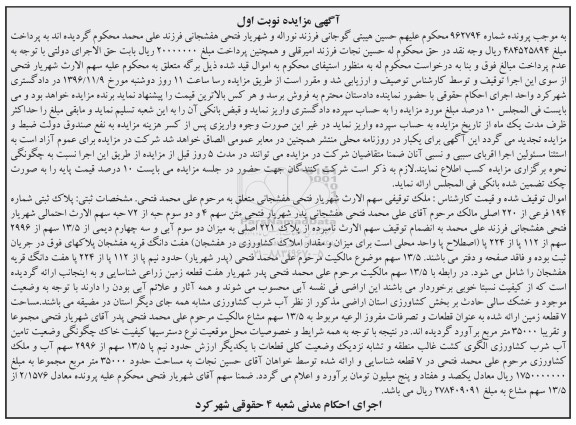 آگهی مزایده نوبت اول
به موجب پرونده شماره ۹۶۲۷۹۴ محکوم علیهم حسین هیبتی گوجانی فرزند نوراله و شهریار فتحی هفشجانی فرزند علی محمد محکوم گردیده اند به پرداخت
مبلغ ۴۸۴۵۲۵۸۹۴ ریال وجه نقد در حق محکوم له حسین نجات فرزند امیرقلی و همچنین پرداخت مبلغ ۲۰۰۰۰۰۰۰ ریال بابت حق الاجرای دولتی با توجه به
عدم پرداخت مبالغ فوق و بنا به درخواست محکوم له به منظور استیفای محکوم به اموال قید شده ذیل برگه متعلق به محکوم علیه سهم الارث شهریار فتحی
از سوی این اجرا توقیف و توسط کارشناس توصیف و ارزیابی شد و مقرر است از طریق مزایده رسا ساعت ۱۱ روز دوشنبه مورخ ۱۳۹۶/۱۱/۹ در دادگستری
شهرکرد واحد اجرای احکام حقوقی با حضور نماینده دادستان محترم به فروش برسد و هر کس بالاترین قیمت را پیشنهاد نماید برنده مزایده خواهد بود و می
بایست فی المجلس ۱۰ درصد مبلغ مورد مزایده را به حساب سپرده دادگستری واریز نماید و قبض بانکی آن را به این شعبه تسلیم نماید و مابقی مبلغ را حداکثر
ظرف مدت یک ماه از تاریخ مزایده به حساب سپرده واریز نماید در غیر این صورت وجوه واریزی پس از کسر هزینه مزایده به نفع صندوق دولت ضبط و
مزایده تجدید می گردد این آگهی برای یکبار در روزنامه محلی منتشر همچنین در معابر عمومی الصاق خواهد شد شرکت در مزایده برای عموم آزاد است به
استثنا مسئولین اجرا اقربای سببی و نسبی آنان ضمنا متقاضیان شرکت در مزایده می توانند در مدت ۵ روز قبل از مزایده از طریق این اجرا نسبت به چگونگی
نحوه برگزاری مزایده کسب اطلاع نمایند.لازم به ذکر است شرکت کنندگان جهت حضور در جلسه مزایده می بایست ۱۰ درصد قیمت پایه را به صورت
چک تضمین شده بانکی فی المجلس ارائه نماید.
اموال توقیف شده و قیمت کارشناس : ملک توقیفی سهم الارث شهریار فتحی هفشجانی متعلق به مرحوم علی محمد فتحی. مشخصات ثبتی: پلاک ثبتی شماره
۱۹۴ فرعی از ۲۲۰ اصلی مالک مرحوم آقای علی محمد فتحی هفشجانی پدر شهریار فتحی متن سهم ۴ و دو سوم حبه از ۷۲ حبه سهم الارث احتمالی شهریار
فتحی هفشجانی فرزند علی محمد به انضمام توقیف سهم الارث نامبرده از پلاک ۲۲۱ اصلی به میزان دو سوم آبی و سه چهارم دیمی از ۱۳/۵ سهم از ۲۹۹۶
سهم از ۱۱۲ پا از ۲۲۴ پا (اصطلاح پا واحد محلی است برای میزان و مقدار املاک کشاورزی در هفشجان) هفت دانگ قریه هفشجان پلاکهای فوق در جریان
ثبت بوده و فاقد صفحه و دفتر می باشند. ۱۳/۵ سهم موضوع مالکیت مرحوم علی محمد فتحی (پدر شهریار) حدود نیم پا از ۱۱۲ پا از ۲۲۴ پا هفت دانگ قریه
هفشجان را شامل می شود. در رابطه با ۱۳/۵ سهم مالکیت مرحوم علی محمد فتحی پدر شهریار هفت قطعه زمین زراعی شناسایی و به اینجانب ارائه گردیده
است که از کیفیت نسبتا خوبی برخوردار می باشند این اراضی فی نفسه آبی محسوب می شوند و همه آثار و علائم آبی بودن را دارند با توجه به وضعیت
موجود و خشک سالی حادث بر بخش کشاورزی استان اراضی مذکور از نظر آب شرب کشاورزی مشابه همه جای دیگر استان در مضیقه می باشند.مساحت
۷ قطعه زمین ارائه شده به عنوان قطعات و تصرفات مفروز الرعیه مربوط به ۱۳/۵ سهم مشاع مالکیت مرحوم علی محمد فتحی پدر آقای شهریار فتحی مجموعا
و تقریبا ۳۵۰۰۰ متر مربع برآورد گردیده اند. در نتیجه با توجه به همه شرایط و خصوصیات محل موقعیت نوع دسترسیها کیفیت خاک چگونگی وضعیت تامین
آب شرب کشاورزی الگوی کشت غالب منطقه و تشابه نزدیک وضعیت کلی قطعات با یکدیگر ارزش حدود نیم پا ۱۳/۵ سهم از ۲۹۹۶ سهم آب و ملک
کشاورزی مرحوم علی محمد فتحی در ۷ قطعه شناسایی و ارائه شده توسط خواهان آقای حسین نجات به مساحت حدود ۳۵۰۰۰ متر مربع مجموعا به مبلغ
۱۷۵۰۰۰۰۰۰۰ ریال معادل یکصد و هفتاد و پنج میلیون تومان برآورد و اعلام می گردد. ضمنا سهم آقای شهریار فتحی محکوم علیه پرونده معادل ۲/۱۵۷۶ از
۱۳/۵ سهم مشاع به مبلغ ۲۷۸۴۰۹۰۹۱ ریال می باشد.
اجرای احکام مدنی شعبه ۴ حقوقی شهرکرد